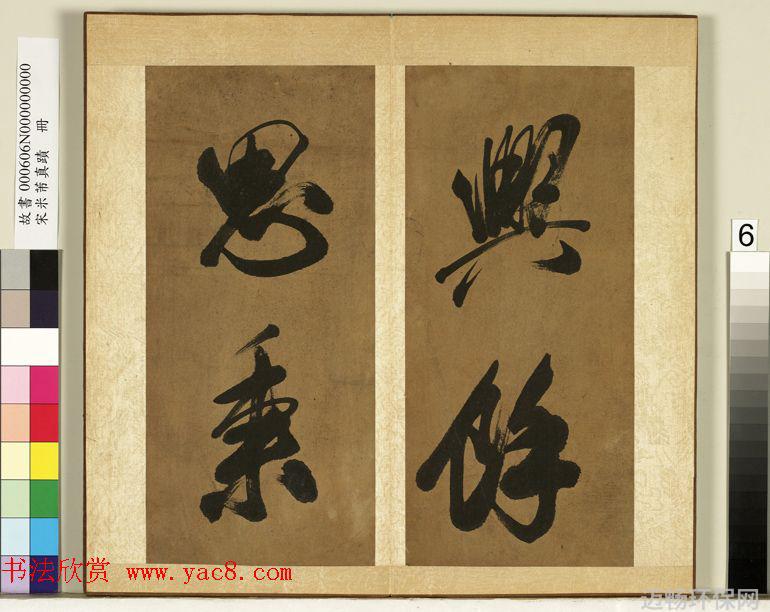 興餘
思秉
故書 000606N000000000
宋米芾真蹟 冊
6
书法欣赏 www.yac8.com
迈畅环保网